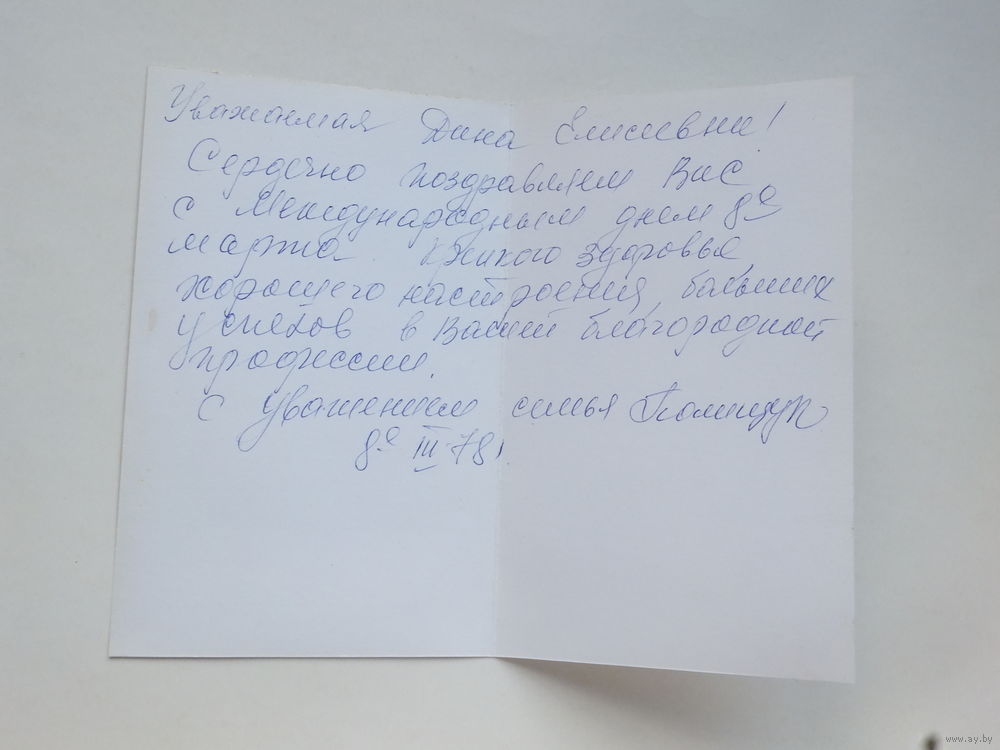 Уважаемая Дина Елисеевна!
Сердечно поздравляем Вас
с Международным днем 8е
марта. Крепкого здоровья,
хорошего настроения, больших
успехов в Вашей благородной
профессии.
С уважением семья
8е III-78
www.ay.by